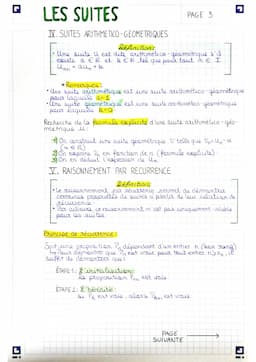 LES SUITES
PAGE 3
IV. SUITES ARITHMETICO-GEOMETRIQUES
Définition :
• Une suite U est dite arithmético-géométrique s'il
existe a ∈ R et b ∈ R, tel que pour tout n ∈ I
Un+1 = aUn + b
• Remarques :
• Une suite arithmétique est une suite arithmético-géométrique
pour laquelle a=1
• Une suite géométrique est une suite arithmético-géométrique
pour laquelle b=0
Recherche de la formule explicite d'une suite arithmético-géo-
métrique U :
1) On construit une suite géométrique V telle que Vn = Un - α
(α ∈ R)
2) On exprime Vn en fonction de n (formule explicite)
3) On en déduit l'expression de Un
V. RAISONNEMENT PAR RECURRENCE
Définition :
• Le raisonnement par récurrence permet de démontrer
certaines propriétés de suites à partir de leur relation de
récurrence.
• Par ailleurs ce raisonnement n'est pas uniquement valable
pour les suites.
Principe de récurrence :
Soit une proposition Pn dépendant d'un entier n
Pour démontrer que Pn est vraie pour tout entier n≥n0, il
suffit de démontrer que :
ÉTAPE 1 : L'initialisation :
la proposition Pn0 est vraie
ÉTAPE 2 : L'hérédité :
si Pk est vraie, alors Pk+1 est vraie.
PAGE
SUIVANTE